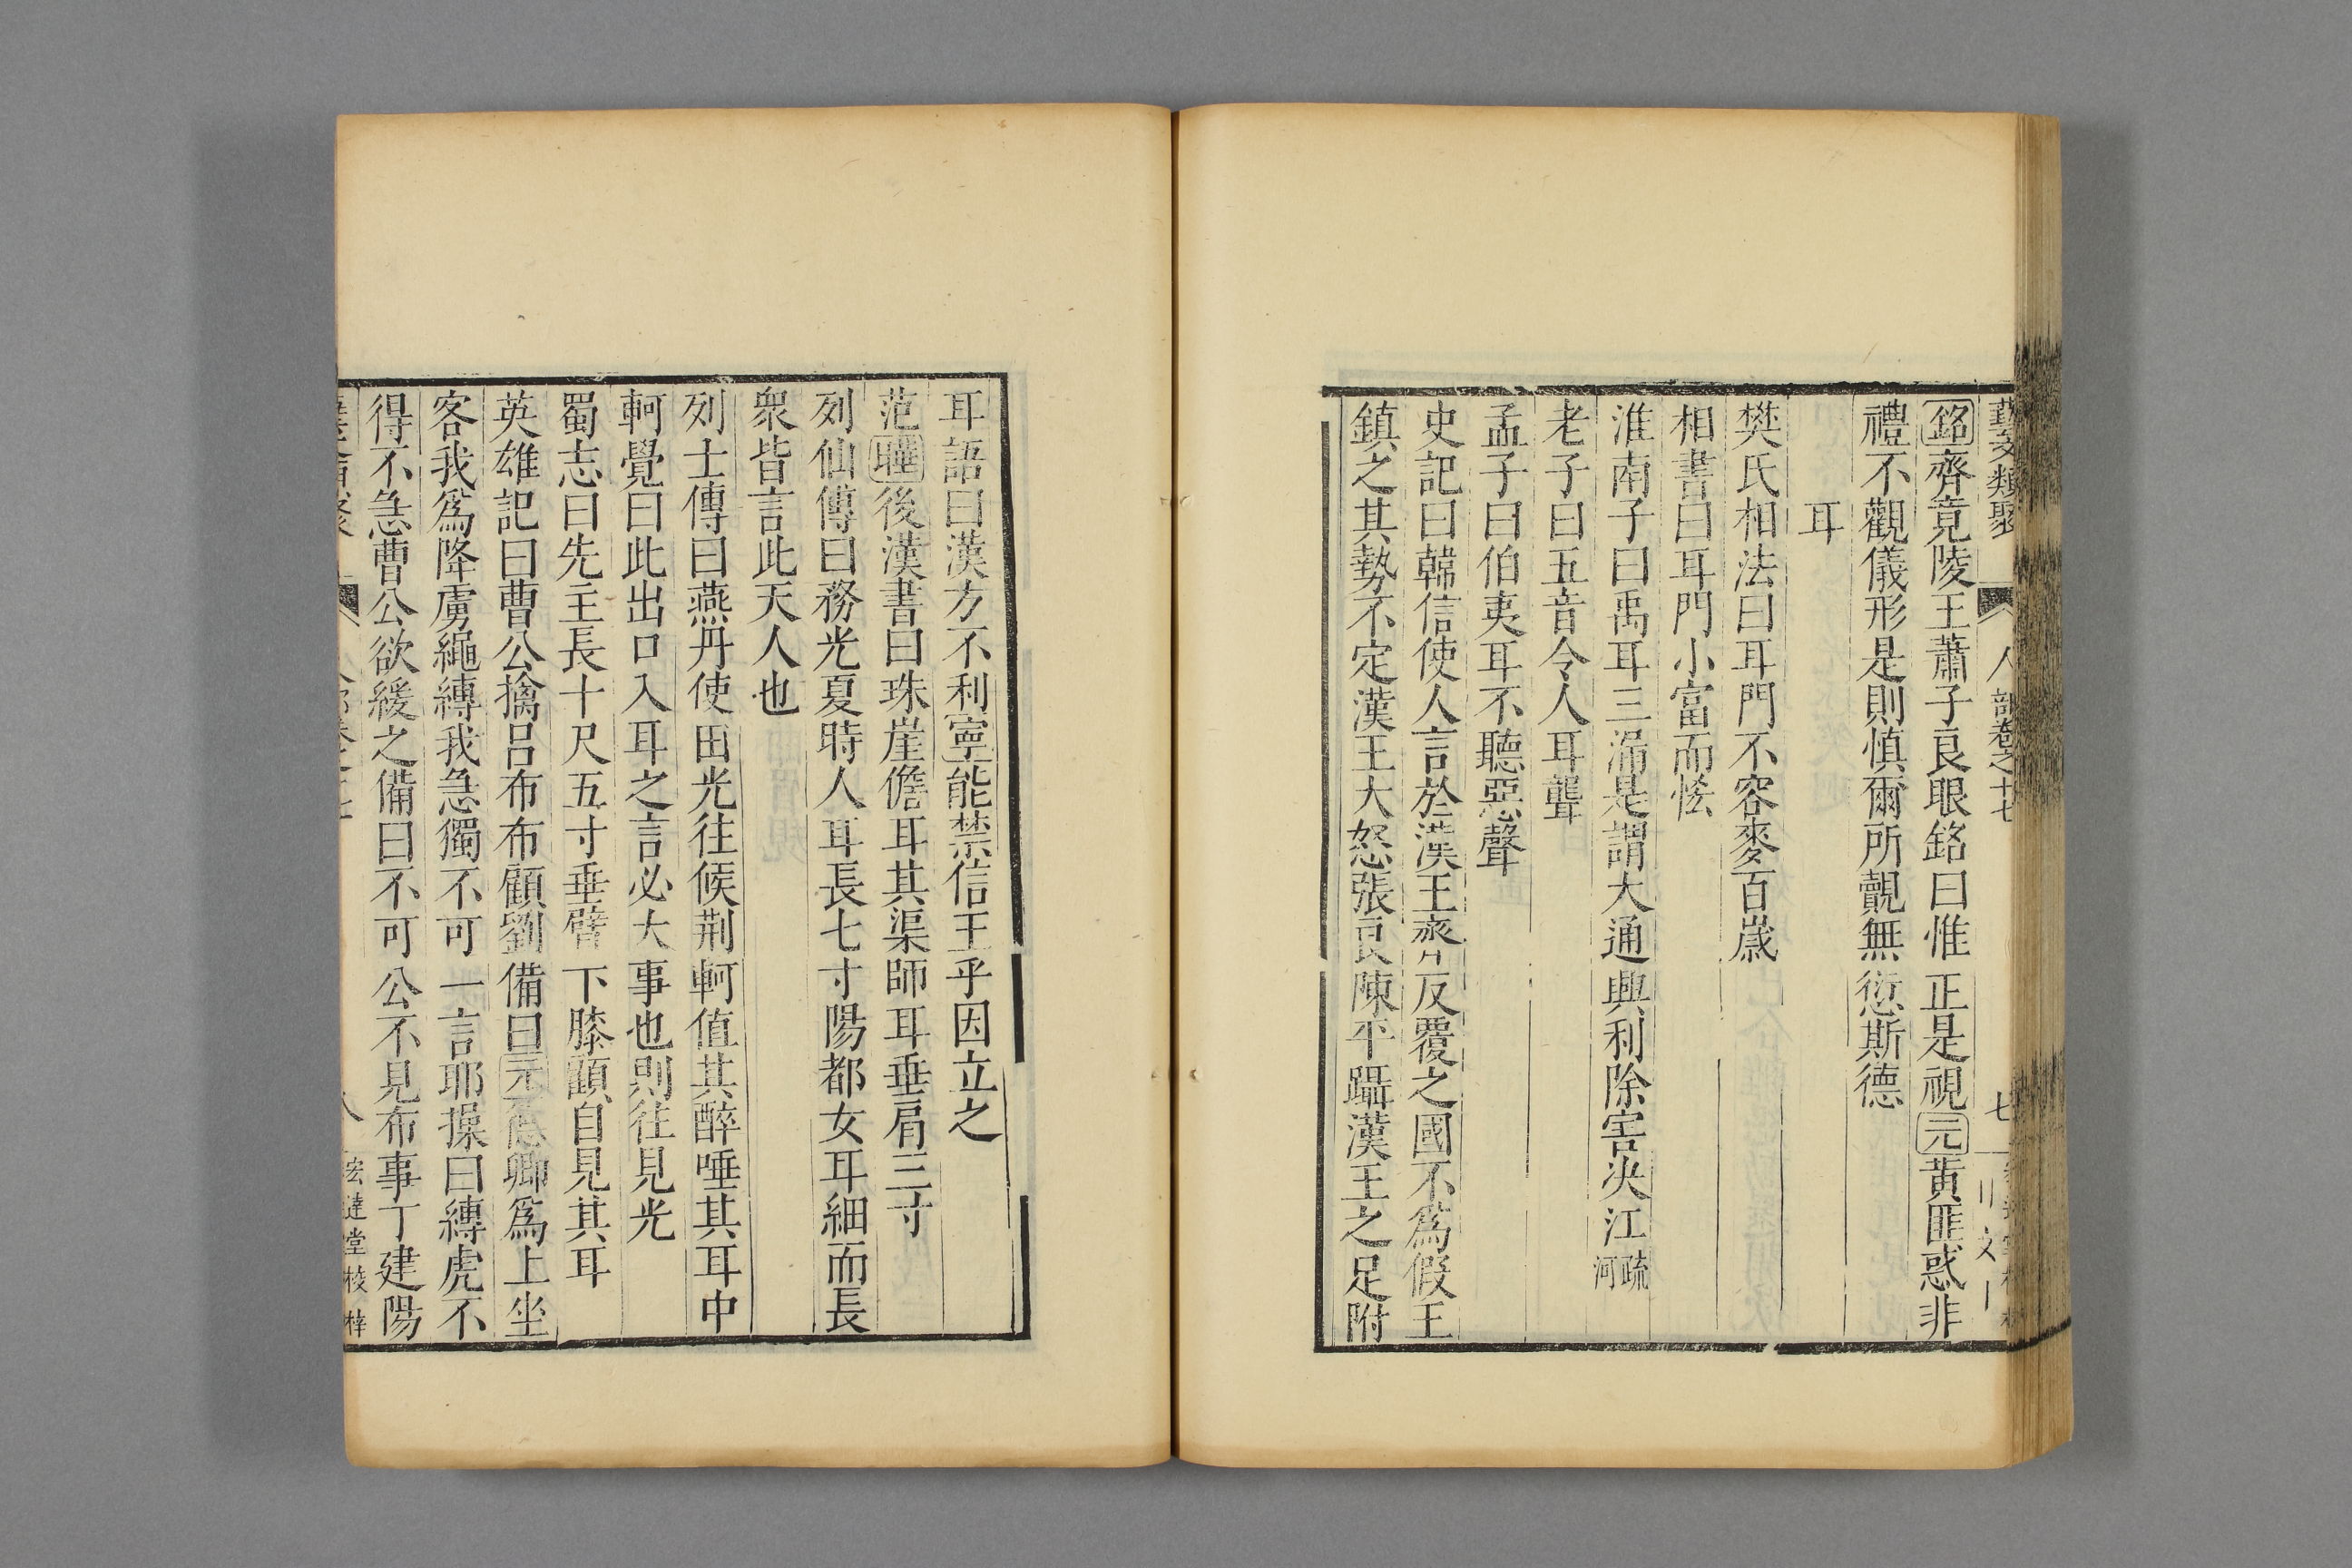 藝文類聚 人部卷之十七 七
銘齊竟陵王蕭子良眼銘曰惟正是視元黃匪惑非
禮不觀儀形是則慎爾所覿無愆斯德
耳
樊氏相法曰耳門不容麥百歲
相書曰耳門小富而恡
淮南子曰禹耳三漏是謂大通興利除害决江疏河
老子曰五音令人耳聾
孟子曰伯夷耳不聽惡聲
史記曰韓信使人言於漢王齊反覆之國不爲假王
鎮之其勢不定漢王大怒張良陳平躡漢王之足附
耳語曰漢方不利寧能禁信王乎因立之
范曄後漢書曰珠崖儋耳其渠師耳垂肩三寸
列仙傳曰務光夏時人耳長七寸陽都女耳細而長
衆皆言此天人也
列士傳曰燕丹使田光往候荆軻值其醉唾其耳中
軻覺曰此出口入耳之言必大事也則往見光
蜀志曰先主長十尺五寸垂臂下膝顧自見其耳
英雄記曰曹公擒呂布布顧劉備曰元德卿爲上坐
客我爲降虜繩縛我急獨不可一言耶操曰縛虎不
得不急曹公欲緩之備曰不可公不見布事丁建陽
八 宏達堂校梓